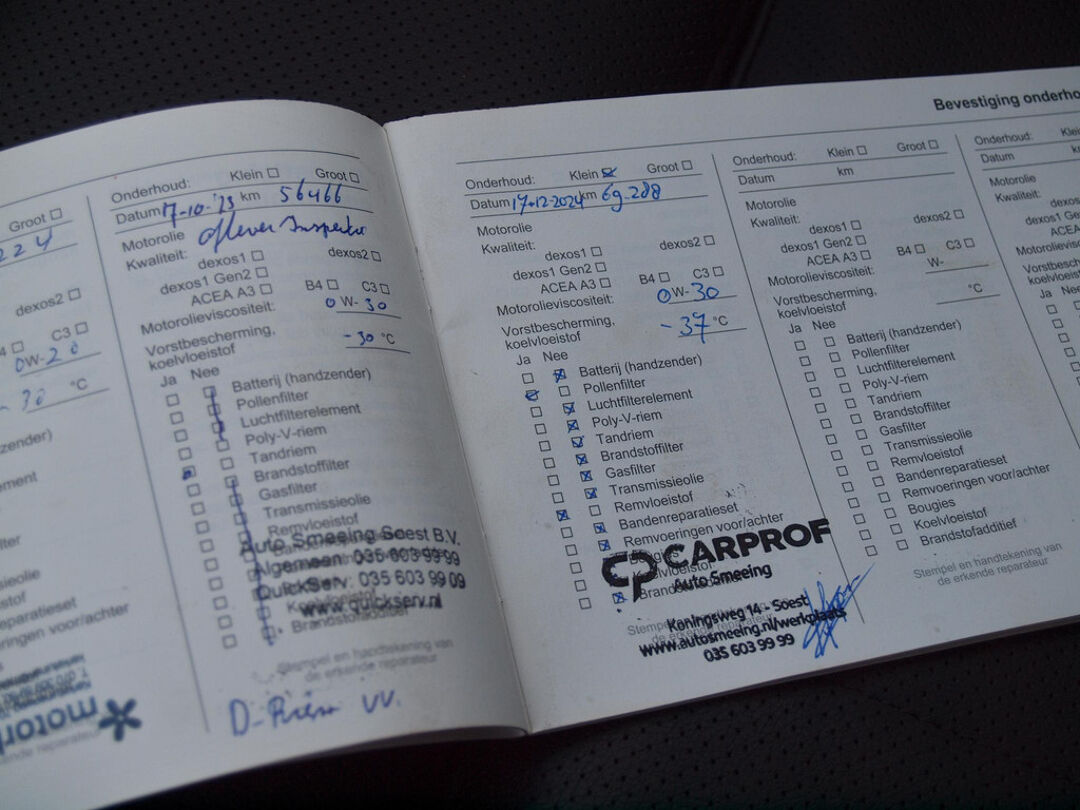 Groot
224
dexos2
4 C3
0W-20
- 30 °C
zender)
ement
ilter
isseolie
stof
reparatieset
eringen voor/achter
motork
erkende reparateur
Onderhoud: Klein Groot
Datum 17-10-'23 km 56466
Motorolie aflever Inspektie
Kwaliteit:
dexos1 dexos2
dexos1 Gen2
ACEA A3 B4 C3
Motorolieviscositeit: 0W-30
Vorstbescherming,
koelvloeistof -30 °C
Ja Nee
Batterij (handzender)
Pollenfilter
Luchtfilterelement
Poly-V-riem
Tandriem
Brandstoffilter
Gasfilter
Transmissieolie
Remvloeistof
Auto Smeeing Soest B.V.
Algemeen: 035 603 99 99
QuickServ: 035 603 99 09
www.quickserv.nl
Brandstofadditief
Stempel en handtekening van
de erkende reparateur
D-Riem VV.
Bevestiging onderho
Onderhoud: Klein Groot
Datum 17-12-2024 km 69-288
Motorolie
Kwaliteit:
dexos1 dexos2
dexos1 Gen2
ACEA A3 B4 C3
Motorolieviscositeit: 0W-30
Vorstbescherming,
koelvloeistof -37 °C
Ja Nee
Batterij (handzender)
Pollenfilter
Luchtfilterelement
Poly-V-riem
Tandriem
Brandstoffilter
Gasfilter
Transmissieolie
Remvloeistof
Bandenreparatieset
Remvoeringen voor/achter
Bougies
Koelvloeistof
Brandstofadditief
CP CARPROF
Auto Smeeing
Koningsweg 14 - Soest
www.autosmeeing.nl/werkplaats
035 603 99 99
Stempel en handtekening van
de erkende reparateur
Onderhoud: Klein Groot
Datum km
Motorolie
Kwaliteit:
dexos1 dexos2
dexos1 Gen2
ACEA A3 B4 C3
Motorolieviscositeit: W-
Vorstbescherming,
koelvloeistof °C
Ja Nee
Batterij (handzender)
Pollenfilter
Luchtfilterelement
Poly-V-riem
Tandriem
Brandstoffilter
Gasfilter
Transmissieolie
Remvloeistof
Bandenreparatieset
Remvoeringen voor/achter
Bougies
Koelvloeistof
Brandstofadditief
Stempel en handtekening van
de erkende reparateur
Onderhoud: Klei
Datum
Motorolie
Kwaliteit:
dexos
dexos1 Ge
ACEA
Motorolievisc
Vorstbesche
koelvloeisto
Ja Ne